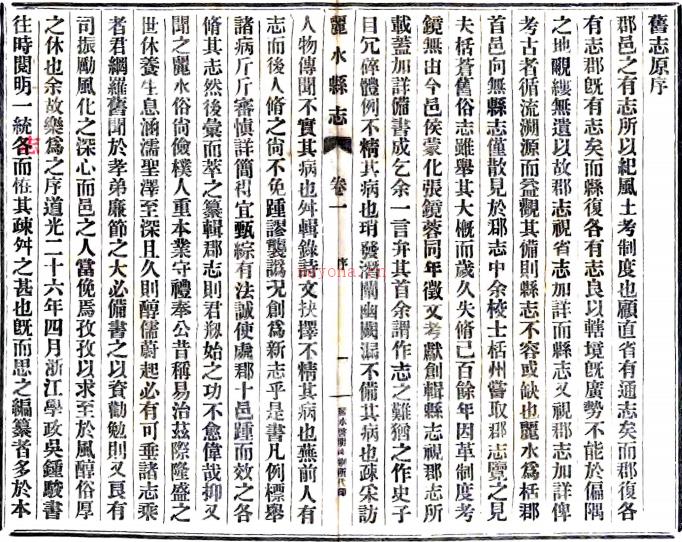 舊志原序
郡邑之有志所以紀風土考制度也顧直省有通志矣而郡復各
有志郡旣有志矣而縣復各有志良以轄境旣廣勢不能於偏隅
之地覼縷無遺以故郡志視省志加詳而縣志又視郡志加詳俾
考古者循流溯源而益觀其備則縣志不容或缺也麗水爲栝郡
首邑向無縣志僅散見於郡志中余校士栝州嘗取郡志覽之見
夫栝蒼舊俗志雖舉其大槪而歲久失脩已百餘年因革制度考
鏡無由今邑侯蒙化張鏡蓉同年徵文考獻創輯縣志視郡志所
載蓋加詳備書成乞余一言弁其首余謂作志之難猶之作史子
目冗碎體例不精其病也瑣發潛闡幽闕漏不備其病也疎宋訪
麗水縣志 卷一 序 一
人物傳聞不實其病也舛輯錄詩文抉擇不精其病也蕪前人有
志而後人脩之尙不免踵謬襲譌况創爲新志乎是書凡例標舉
諸病斤斤審愼詳簡得宜甄綜有法誠使處郡十邑踵而效之各
脩其志然後彙而萃之纂輯郡志則君剏始之功不愈偉哉抑又
聞之麗水俗尙儉樸人重本業守禮奉公昔稱易治茲際隆盛之
世休養生息涵濡聖澤至深且久則醇儒蔚起必有可垂諸志乘
者君網羅舊聞於孝弟廉節之大必備書之以資勸勉則又良有
司振勵風化之深心而邑之人當俛焉孜孜以求至於風醇俗厚
之休也余故樂爲之序道光二十六年四月浙江學政吳鍾駿書
往時閱明一統各而恠其疎舛之甚也旣而思之編纂者多於本
志